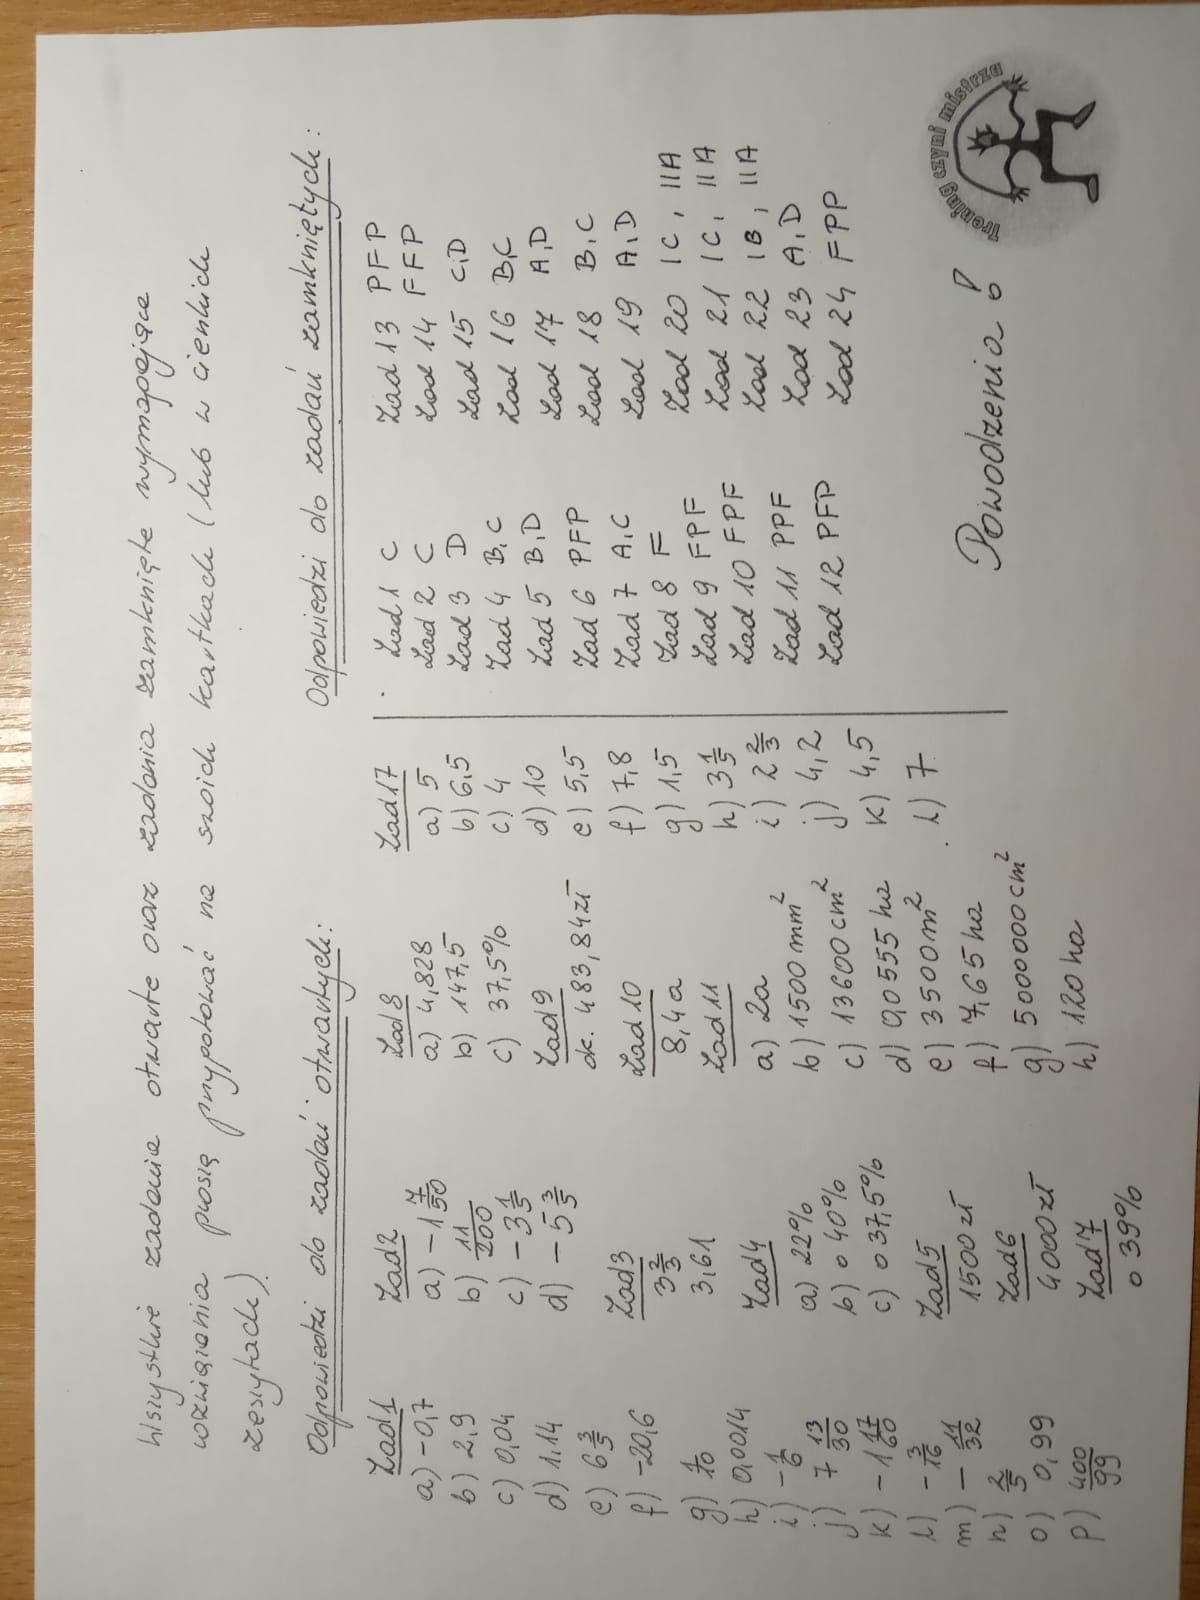 Wszystkie zadania otwarte oraz zadania zamknięte wymagające
rozwiązania proszę przygotować na swoich kartkach (lub w cienkich
zeszytach).
Odpowiedzi do zadań otwartych:
Zad 1
a) -0,7
b) 2,9
c) 0,04
d) 1,14
e) 6 3/5
f) -20,6
g) 1/10
h) 0,0014
i) -1/6
j) 7 13/30
k) -1 17/60
l) -3/16
m) -11/32
n) 2/5
o) 0,99
p) 400/99
Zad 2
a) -1 7/50
b) 11/200
c) -3 1/5
d) -5 3/5
Zad 3
3 2/3
3,61
Zad 4
a) 22%
b) o 40%
c) o 37,5%
Zad 5
1500 zł
Zad 6
4000 zł
Zad 7
o 39%
Zad 8
a) 4,828
b) 147,5
c) 37,5%
Zad 9
ok. 483,84 zł
Zad 10
8,4 a
Zad 11
a) 2a
b) 1500 mm²
c) 13600 cm²
d) 0,0555 ha
e) 3500 m²
f) 7,65 ha
g) 5000000 cm²
h) 120 ha
Zad 17
a) 5
b) 6,5
c) 4
d) 10
e) 5,5
f) 7,8
g) 1,5
h) 3 1/5
i) 2 2/3
j) 4,2
k) 4,5
l) 7
Odpowiedzi do zadań zamkniętych:
Zad 1 C
Zad 2 C
Zad 3 D
Zad 4 B, C
Zad 5 B, D
Zad 6 PFP
Zad 7 A, C
Zad 8 F
Zad 9 FPF
Zad 10 FPF
Zad 11 PPF
Zad 12 PFP
Zad 13 PFP
Zad 14 FFP
Zad 15 C, D
Zad 16 B, C
Zad 17 A, D
Zad 18 B, C
Zad 19 A, D
Zad 20 IC, IIA
Zad 21 IC, IIA
Zad 22 IB, IIA
Zad 23 A, D
Zad 24 FPP
Powodzenia!
Trening czyni mistrza